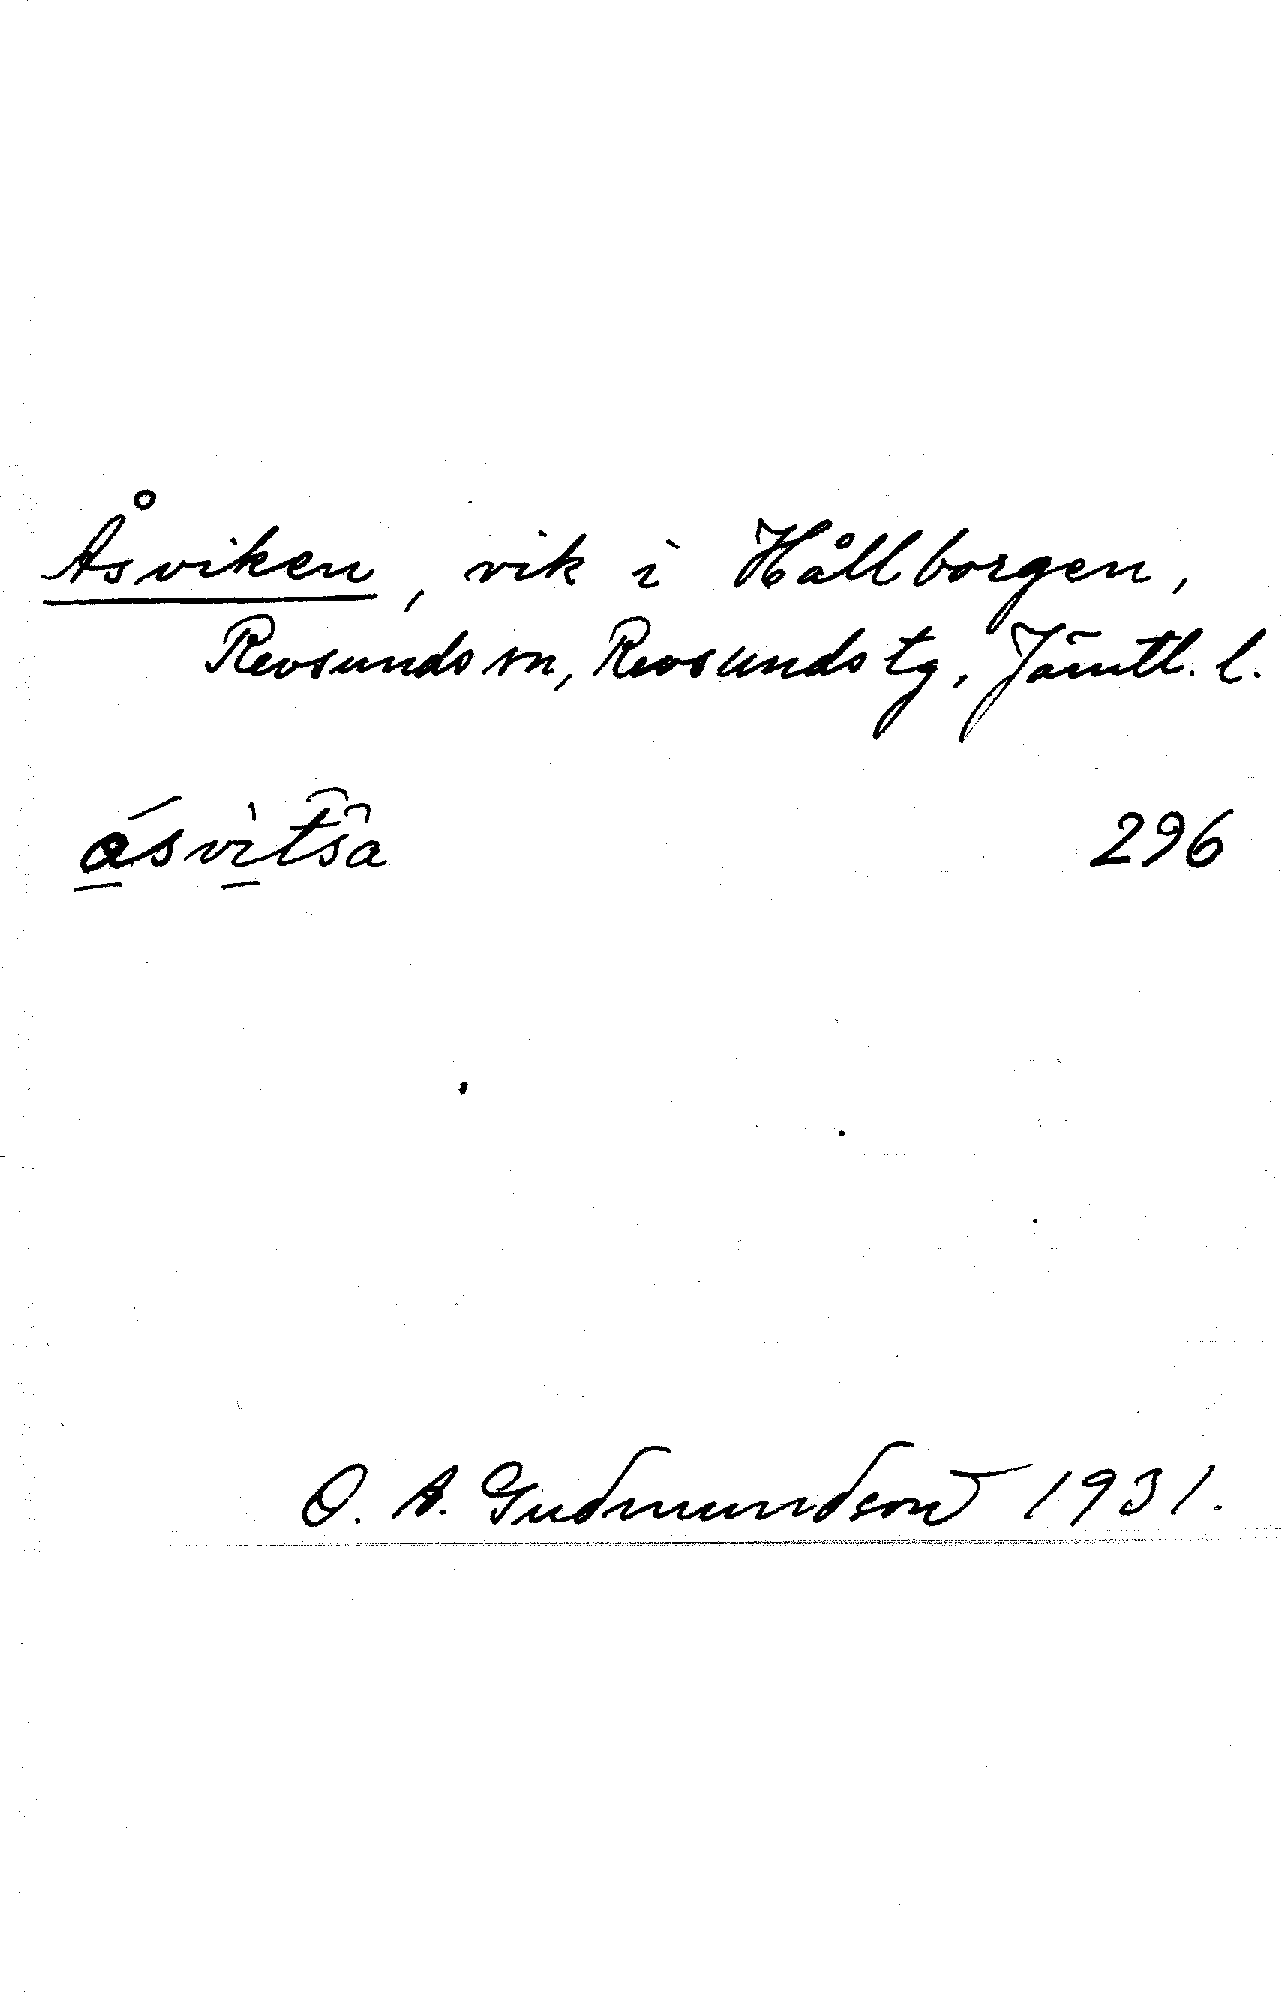 Åsviken, vik i Hållborgen,
Revsunds sn, Revsunds tg, Jämtl. l.
296
O. A. Gudmundson 1931.